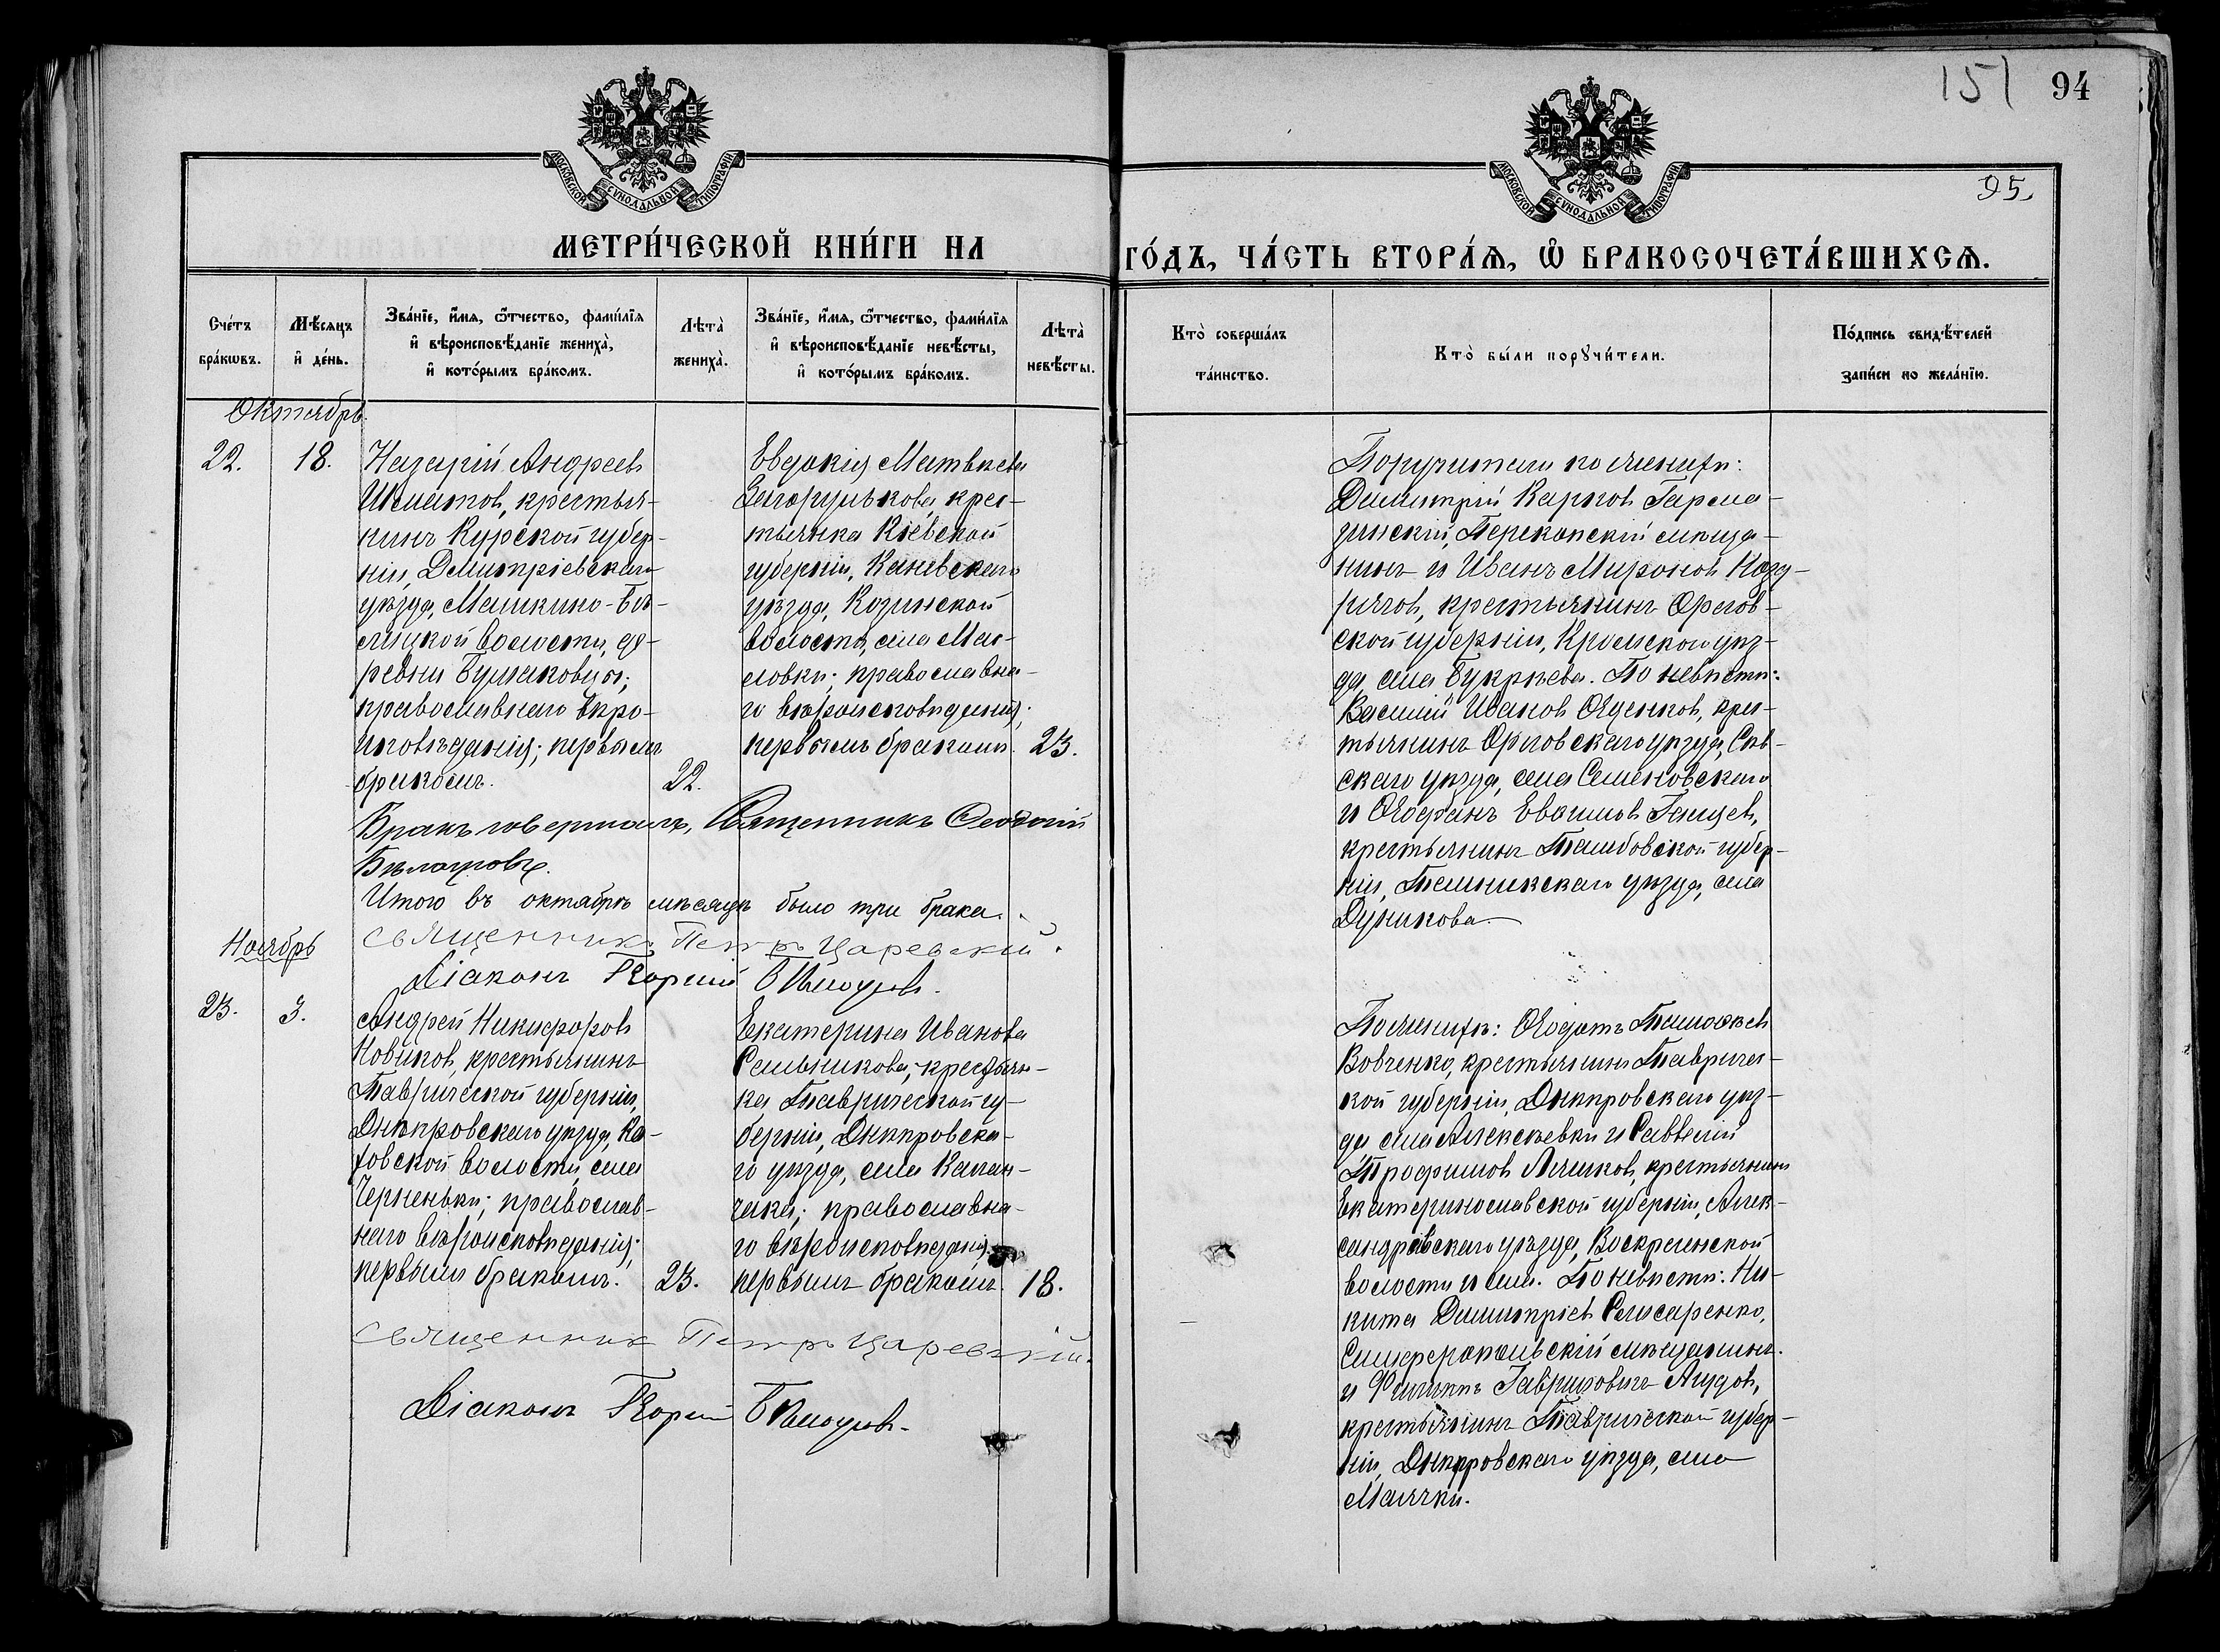 151 94
95.
МОСКОВСКОЙ СѴНОДАЛЬНОЙ ТИПОГРАФІИ
МОСКОВСКОЙ СѴНОДАЛЬНОЙ ТИПОГРАФІИ
МЕТРИ́ЧЕСКОЙ КНИ́ГИ НА ГО́ДЪ, ЧА́СТЬ ВТОРА́Ѧ, Ѡ҆ БРАКОСОЧЕТА́ВШИХСѦ.
Сче́тъ
бра́кѡвъ.
Мѣ́сѧцъ
и҆ де́нь.
Зва́нїе, и҆́мѧ, ѻ҆́тчество, фами́лїѧ
и҆ вѣроисповѣ́данїе жениха̀,
и҆ кото́рымъ бра́комъ.
Лѣта̀
жениха̀.
Зва́нїе, и҆́мѧ, ѻ҆́тчество, фами́лїѧ
и҆ вѣроисповѣ́данїе невѣ́сты,
и҆ кото́рымъ бра́комъ.
Лѣта̀
невѣ́сты.
Кто̀ соверша́лъ
та́инство.
Кто̀ бы́ли порꙋчи́тели.
По́дпись свидѣ́телей
за́писи по жела́нїю.
Октябрь.
22.
18.
Назарій Андреевъ
крестья-
нинъ Курской губер-
ніи, Дмитріевскаго
уѣзда,
волости, де-
ревни
православнаго вѣро-
исповѣданія; первымъ
бракомъ.
22.
Евдокія Матвѣева
Загорулькова, крес-
тьянка Кіевской
губерніи, Каневскаго
уѣзда, Козинской
волости, села Мас-
ловки; православна-
го вѣроисповѣданія;
первымъ бракомъ.
23.
Поручители по женихѣ:
Димитрій Карповъ Гарма-
зинскій, Перекопскій мѣща-
нинъ и Иванъ Мироновъ
крестьянинъ Орлов-
ской губерніи, Кромскаго уѣз-
да, села Букрѣева. По невѣстѣ:
Василій Ивановъ крес-
тьянинъ Орловскаго уѣзда, Сѣв-
скаго уѣзда, села Семеновскаго
и
крестьянинъ Тамбовской губер-
ніи, Темниковскаго уѣзда, села
Бракъ совершалъ, Священникъ Ѳеодосій
Итого въ октябрѣ мѣсяцѣ было три брака.
Священникъ Петръ Царевскій.
Діаконъ Георгій
Ноябрь
23.
3.
Андрей Никифоровъ
Новиковъ, крестьянинъ
Таврической губерніи,
Днѣпровскаго уѣзда, Ка-
ховской волости, села
Черненьки; православ-
наго вѣроисповѣданія;
первымъ бракомъ.
23.
Екатерина Иванова
крестьян-
ка Таврической гу-
берніи, Днѣпровска-
го уѣзда, села Калан-
чака; православна-
го вѣроисповѣданія;
первымъ бракомъ.
18.
По женихѣ: Ѳедотъ Тимоѳеевъ
Вовченко, крестьянинъ Тавричес-
кой губерніи, Днѣпровскаго уѣз-
да, села Алексѣевки и Савелій
Трофимовъ Лямковъ, крестьянинъ
Екатеринославской губерніи, Алек-
сандровскаго уѣзда, Воскресенской
волости и села. По невѣстѣ: Ни-
кита Димитріевъ Слисаренко,
Симферопольскій мѣщанинъ
и Филиппъ Гавриловичъ
крестьянинъ Таврической губер-
ніи, Днѣпровскаго уѣзда, села
Маячки.
Священникъ Петръ Царевскій.
Діаконъ Георгій